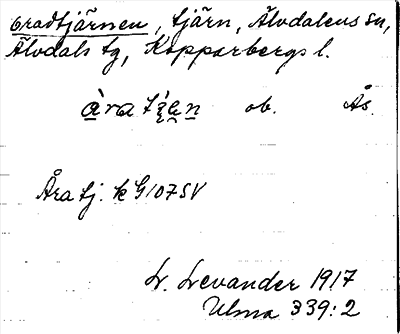 Oradtjärnen, tjärn, Älvdalens sn,
Älvdals tg, Kopparbergs l.
ob. Ås.
Åra tj. k G107SV
L. Levander 1917
Ulma 339:2